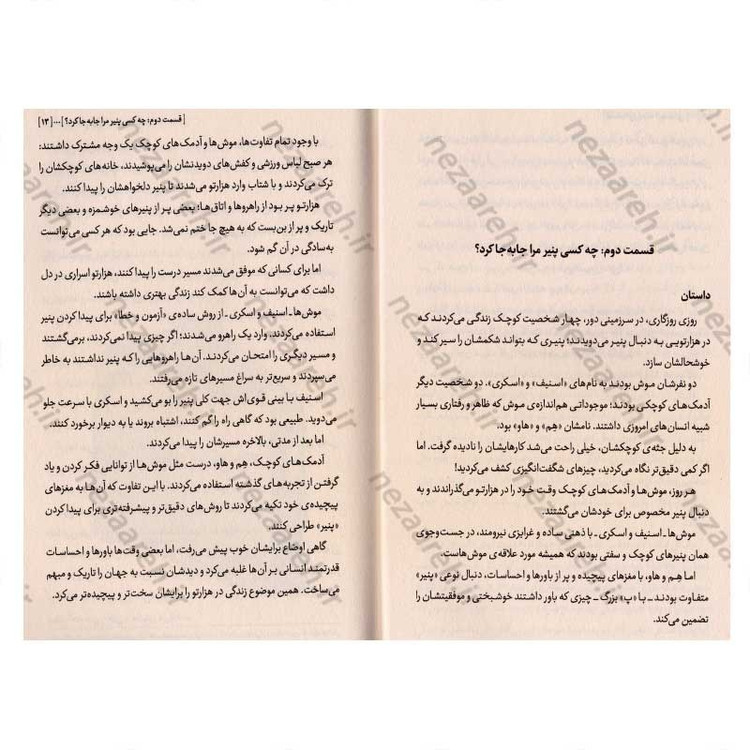 قسمت دوم: چه کسی پنیر مرا جابه‌جا کرد؟
داستان
روزی روزگاری، در سرزمینی دور، چهار شخصیت کوچک زندگی می‌کردند که
در هزارتویی به دنبال پنیر می‌دویدند؛ پنیری که بتواند شکمشان را سیر کند و
خوشحالشان سازد.
دو نفرشان موش بودند به نام‌های «اسنیف» و «اسکری». دو شخصیت دیگر
آدمک‌های کوچکی بودند؛ موجوداتی هم‌اندازه‌ی موش که ظاهر و رفتاری بسیار
شبیه انسان‌های امروزی داشتند. نامشان «هِم» و «هاو» بود.
به دلیل جثه‌ی کوچکشان، خیلی راحت می‌شد کارهایشان را نادیده گرفت. اما
اگر کمی دقیق‌تر نگاه می‌کردید، چیزهای شگفت‌انگیزی کشف می‌کردید!
هر روز، موش‌ها و آدمک‌های کوچک وقت خود را در هزارتو می‌گذراندند و به
دنبال پنیر مخصوص برای خودشان می‌گشتند.
موش‌ها ـ اسنیف و اسکری ـ با ذهنی ساده و غرایزی نیرومند، در جست‌وجوی
همان پنیرهای کوچک و سفتی بودند که همیشه مورد علاقه‌ی موش‌هاست.
اما هِم و هاو، با مغزهای پیچیده و پر از باورها و احساسات، دنبال نوعی «پنیر»
متفاوت بودند ـ با «پ» بزرگ ـ چیزی که باور داشتند خوشبختی و موفقیتشان را
تضمین می‌کند.
[قسمت دوم: چه کسی پنیر مرا جابه‌جا کرد؟]...[۱۳]
با وجود تمام تفاوت‌ها، موش‌ها و آدمک‌های کوچک یک وجه مشترک داشتند:
هر صبح لباس ورزشی و کفش‌های دویدنشان را می‌پوشیدند، خانه‌های کوچکشان را
ترک می‌کردند و با شتاب وارد هزارتو می‌شدند تا پنیر دلخواهشان را پیدا کنند.
هزارتو پر بود از راهروها و اتاق‌ها؛ بعضی پر از پنیرهای خوشمزه و بعضی دیگر
تاریک و پر از بن‌بست که به هیچ جا ختم نمی‌شد. جایی بود که هر کسی می‌توانست
به‌سادگی در آن گم شود.
اما برای کسانی که موفق می‌شدند مسیر درست را پیدا کنند، هزارتو اسراری در دل
داشت که می‌توانست به آن‌ها کمک کند زندگی بهتری داشته باشند.
موش‌ها ـ اسنیف و اسکری ـ از روش ساده‌ی «آزمون و خطا» برای پیدا کردن پنیر
استفاده می‌کردند. وارد یک راهرو می‌شدند؛ اگر چیزی پیدا نمی‌کردند، برمی‌گشتند
و مسیر دیگری را امتحان می‌کردند. آن‌ها راهروهایی را که پنیر نداشتند به خاطر
می‌سپردند و سریع‌تر به سراغ مسیرهای تازه می‌رفتند.
اسنیف با بینی قوی‌اش جهت کلی پنیر را بو می‌کشید و اسکری با سرعت جلو
می‌دوید. طبیعی بود که گاهی راه را گم کنند، اشتباه بروند یا به دیوار برخورد کنند.
اما بعد از مدتی، بالاخره مسیرشان را پیدا می‌کردند.
آدمک‌های کوچک، هِم و هاو، درست مثل موش‌ها از توانایی فکر کردن و یاد
گرفتن از تجربه‌های گذشته استفاده می‌کردند. با این تفاوت که آن‌ها به مغزهای
پیچیده‌ی خود تکیه می‌کردند تا روش‌های دقیق‌تر و پیشرفته‌تری برای پیدا کردن
«پنیر» طراحی کنند.
گاهی اوضاع برایشان خوب پیش می‌رفت، اما بعضی وقت‌ها باورها و احساسات
قدرتمند انسانی بر آن‌ها غلبه می‌کرد و دیدشان نسبت به جهان را تاریک و مبهم
می‌ساخت. همین موضوع زندگی در هزارتو را برایشان سخت‌تر و پیچیده‌تر می‌کرد.
nezaareh.ir